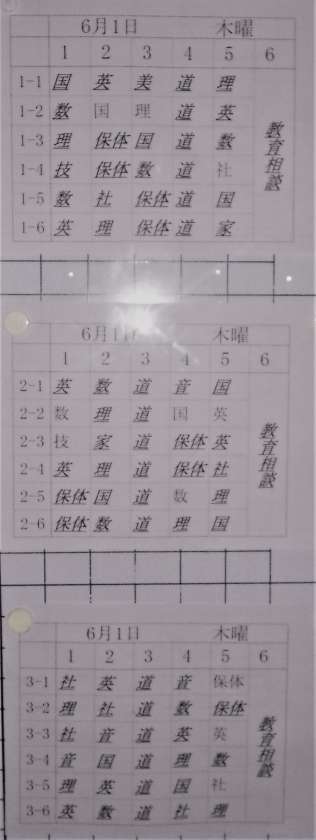 6月1日 木曜
1 2 3 4 5 6
1-1 国 英 美 道 理
1-2 数 国 理 道 英
1-3 理 保体 国 道 数
1-4 技 保体 数 道 社
1-5 数 社 保体 道 国
1-6 英 理 保体 道 家
教育相談
6月1日 木曜
1 2 3 4 5 6
2-1 英 数 道 音 国
2-2 数 理 道 国 英
2-3 技 家 道 保体 英
2-4 英 理 道 保体 社
2-5 保体 国 道 数 理
2-6 保体 数 道 理 国
教育相談
6月1日 木曜
1 2 3 4 5 6
3-1 社 英 道 音 保体
3-2 理 社 道 数 保体
3-3 社 音 道 英 英
3-4 音 国 道 理 数
3-5 理 英 道 国 社
3-6 英 数 道 社 理
教育相談